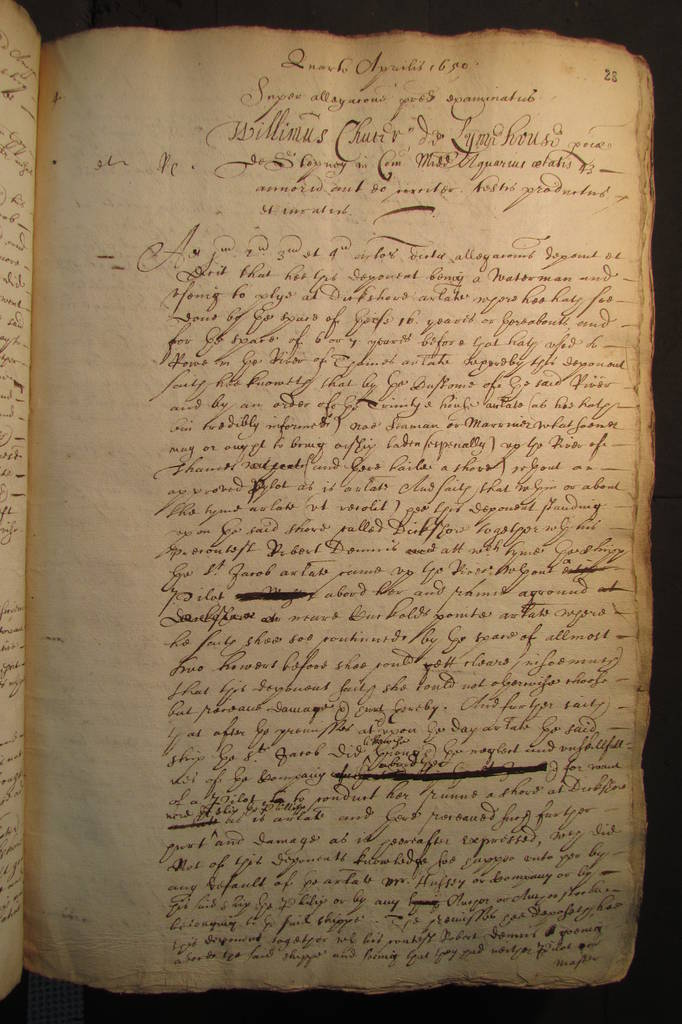 28
Quarto Aprilis 1650.
Super allegacone pred examinatus
Willimus Chuter de Lymehouse
de Stepney in Com Midd Aquarius ætatis 43
annorum aut eo circiter testis productus
et iuratus.
Ad 1um 2d 3um et 4um arlos dictæ allegaconis deponit et
dicit that hee this deponent being a Waterman and
useing to plye at Dickshore arlate where hee hath soe
done by the space of these 16 yeares or thereabouts and
for the space of 6 or 7 yeares before that hath used to
Rowe in the River of Thames arlate whereby this deponent
saith hee knoweth that by the Custome of the said River
and by an order of the Trinitye house arlate (as hee hath
bin credibly informed) noe Seaman or Marriner whatsoever
may or ought to bring a ship laden (especially) up the River of
Thames and there laie a shore without an
approved Pylot as is arlate And saith that upon or about
the tyme arlate (ut recolit) hee this deponent standing
upon the said shore called Dickshore together with his
precontest Robert Dennis att which tyme the shipp
the St Jacob arlate came up the River without a
Pilot abord her and came aground
neare Cuckolds pointe arlate where
he saith shee soe continued by the space of allmost
two howers before shee could gett cleare, insoemuch
that this deponent saith she could not otherwise choose
but receave damage thereby. And further saith
that after the premisses upon the day arlate the said
ship the St Jacob did likewise through the neglect and unskillfull-
nes of the Company for want
of a Pilot to conduct her runne a shore at Dickshore
as is arlate and there receaved such further
hurt and damage as is hereafter expressed, which did
Not of this deponents knowledge soe happen unto her by
any default of the arlate Mr. Hussey or Company or by
the said ship the Philip or by any Anchor or Anchor stocke
belonging to the said shippe. The premisses hee deposeth, hee
this deponent together with his contest Robert Dennis goeing
aborde the said shippe and seeing that they had neither Pilot nor
Master